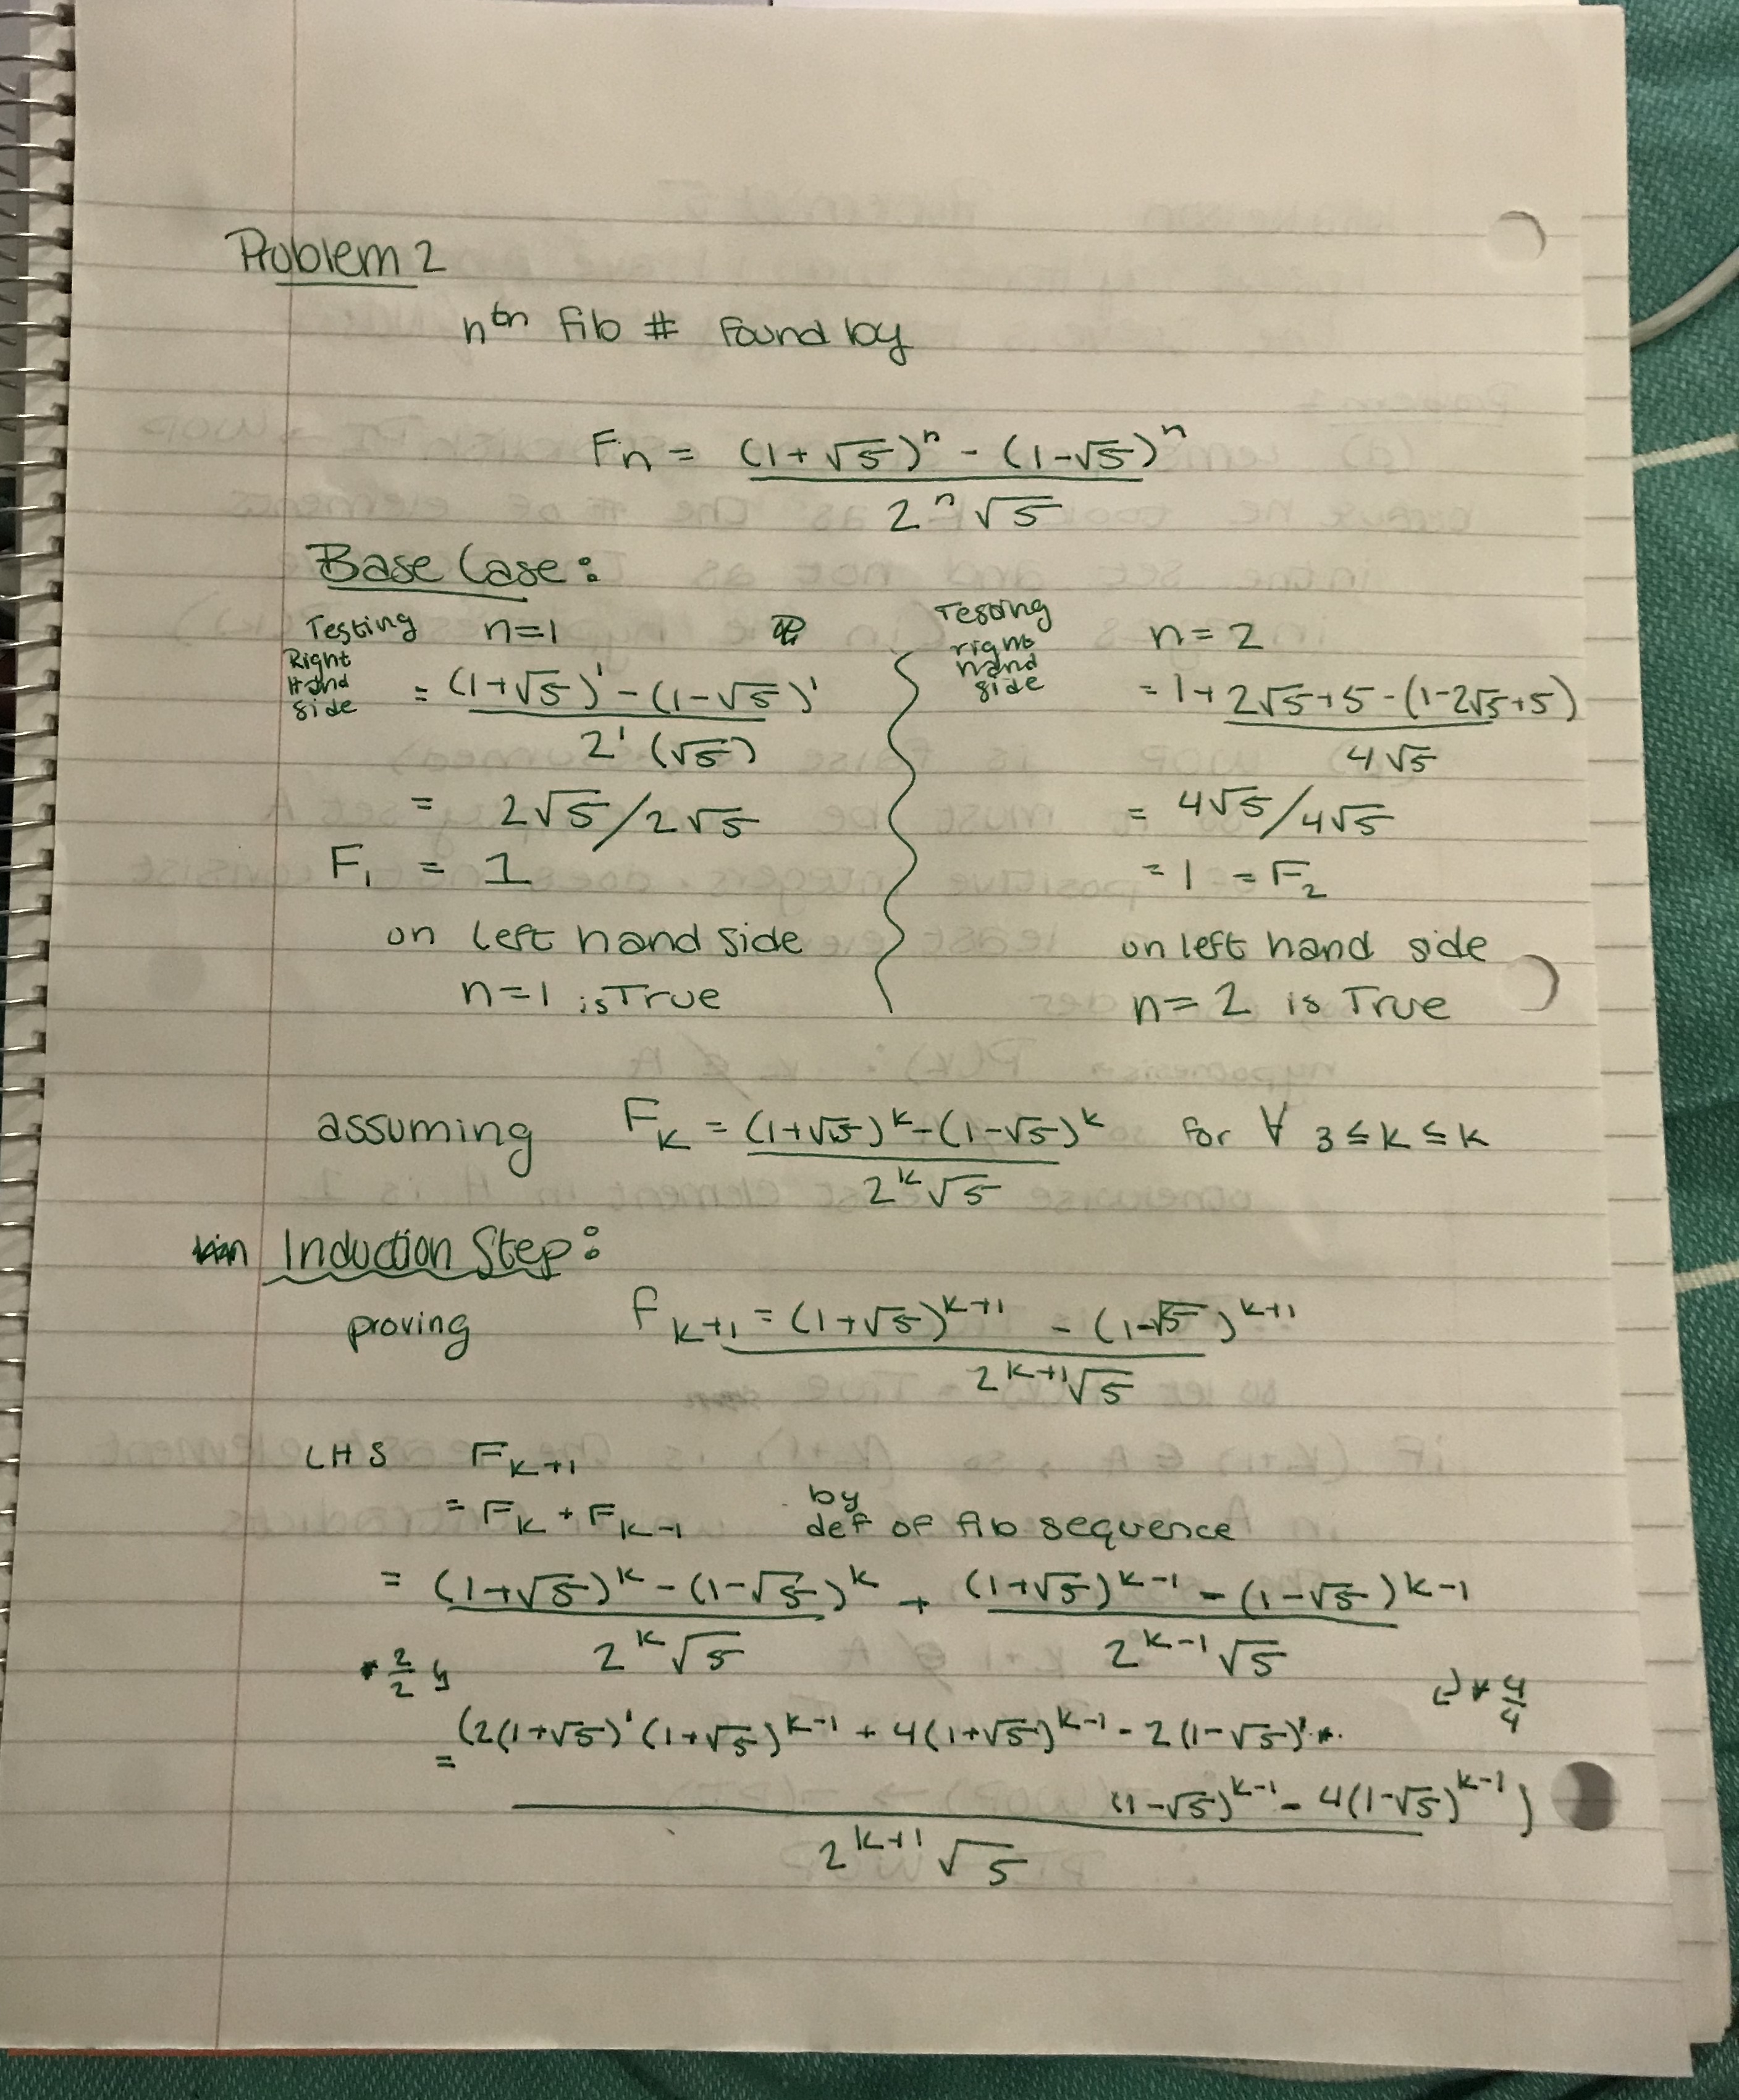 Problem 2
nth fib # found by
Fn = (1+√5)^n - (1-√5)^n
2^n √5
Base Case:
Testing n=1
Right Hand Side = (1+√5)^1 - (1-√5)^1
2^1 (√5)
= 2√5/2√5
F₁ = 1
on left hand side
n=1 is True
Testing right hand side n=2
= 1+2√5+5-(1-2√5+5)
4√5
= 4√5/4√5
= 1 = F₂
on left hand side
n=2 is True
assuming F_k = (1+√5)^k-(1-√5)^k for ∀ 3≤k≤k
2^k √5
Induction Step:
proving F_k+1 = (1+√5)^k+1 - (1-√5)^k+1
2^k+1 √5
LHS F_k+1
= F_k + F_k-1 by def of fib sequence
= (1+√5)^k - (1-√5)^k + (1+√5)^k-1 - (1-√5)^k-1
2^k √5 2^k-1 √5
* 2/2 * 4/4
= (2(1+√5)^1 (1+√5)^k-1 + 4(1+√5)^k-1 - 2(1-√5)^1 *
(1-√5)^k-1 - 4(1-√5)^k-1)
2^k+1 √5